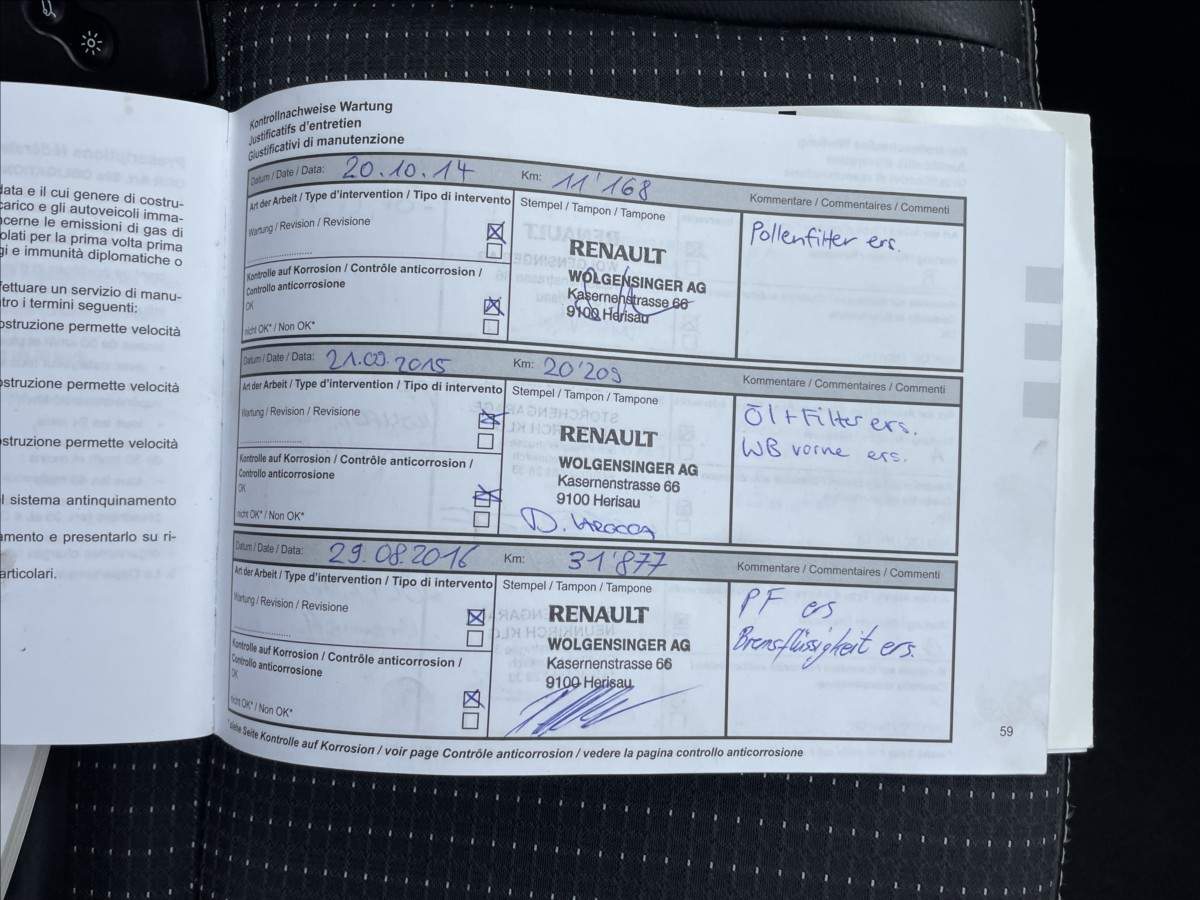 data e il cui genere di costru-
carico e gli autoveicoli imma-
ncerne le emissioni di gas di
olati per la prima volta prima
gi e immunità diplomatiche o
fettuare un servizio di manu-
tro i termini seguenti:
ostruzione permette velocità
ostruzione permette velocità
ostruzione permette velocità
l sistema antinquinamento
amento e presentarlo su ri-
articolari.
Kontrollnachweise Wartung
Justificatifs d'entretien
Giustificativi di manutenzione
Datum / Date / Data: 20.10.14 Km: 11'168 Kommentare / Commentaires / Commenti
Art der Arbeit / Type d'intervention / Tipo di intervento
Wartung / Revision / Revisione
Kontrolle auf Korrosion / Contrôle anticorrosion /
Controllo anticorrosione
OK
nicht OK* / Non OK*
Stempel / Tampon / Tampone
RENAULT
WOLGENSINGER AG
Kasernenstrasse 66
9100 Herisau
Pollenfilter ers.
Datum / Date / Data: 21.09.2015 Km: 20'209 Kommentare / Commentaires / Commenti
Art der Arbeit / Type d'intervention / Tipo di intervento
Wartung / Revision / Revisione
Kontrolle auf Korrosion / Contrôle anticorrosion /
Controllo anticorrosione
OK
nicht OK* / Non OK*
Stempel / Tampon / Tampone
RENAULT
WOLGENSINGER AG
Kasernenstrasse 66
9100 Herisau
D. LAROCCA
Öl + Filter ers.
WB vorne ers.
Datum / Date / Data: 29.08.2016 Km: 31'877 Kommentare / Commentaires / Commenti
Art der Arbeit / Type d'intervention / Tipo di intervento
Wartung / Revision / Revisione
Kontrolle auf Korrosion / Contrôle anticorrosion /
Controllo anticorrosione
OK
nicht OK* / Non OK*
Stempel / Tampon / Tampone
RENAULT
WOLGENSINGER AG
Kasernenstrasse 66
9100 Herisau
PF ers
Bremsflüssigkeit ers.
*siehe Seite Kontrolle auf Korrosion / voir page Contrôle anticorrosion / vedere la pagina controllo anticorrosione
59